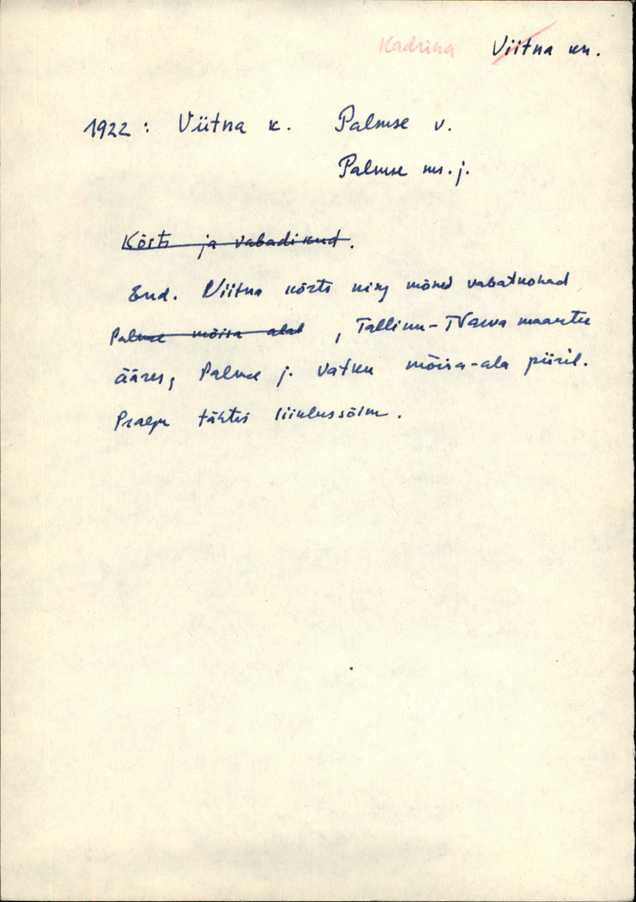 Kadrina Viitna kn.
1922: Viitna k. Palmse v.
Palmse ms. j.
Kõrts ja vabadikud.
End. Viitna kõrts ning mõned vabatkohad
Palmse mõisa alal, Tallinn-Narva maantee
ääres, Palmse j. Vatku mõisa-ala piiril.
Praegu tähtis liiklussõlm.